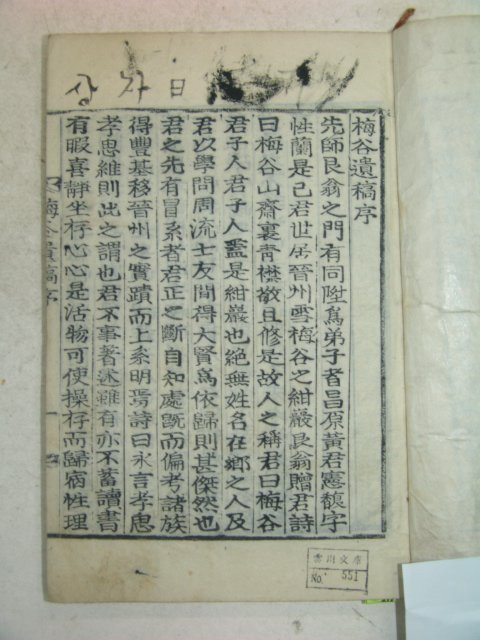 상 가 日
梅谷遺稿序
先師艮翁之門有同陞爲弟子者昌原黃君憲馥字
性蘭是已君世居晉州雲梅谷之紺巖艮翁贈君詩
曰梅谷山齋裏靑襟敬且修是故人之稱君曰梅谷
君子人君子人蓋是紺巖也絶無姓名在鄕之人及
君以學問周流士友間得大賢爲依歸則甚傑然也
君之先有冒系者君正之斷自知處旣而偏考諸族
得豐基移晉州之實蹟而上系明焉詩曰永言孝思
孝思維則此之謂也君不事著述雖有亦不蓄讀書
有暇喜靜坐存心心是活物可使操存而歸病性理
梅谷遺稿序
一
雲川文庫
No. 551